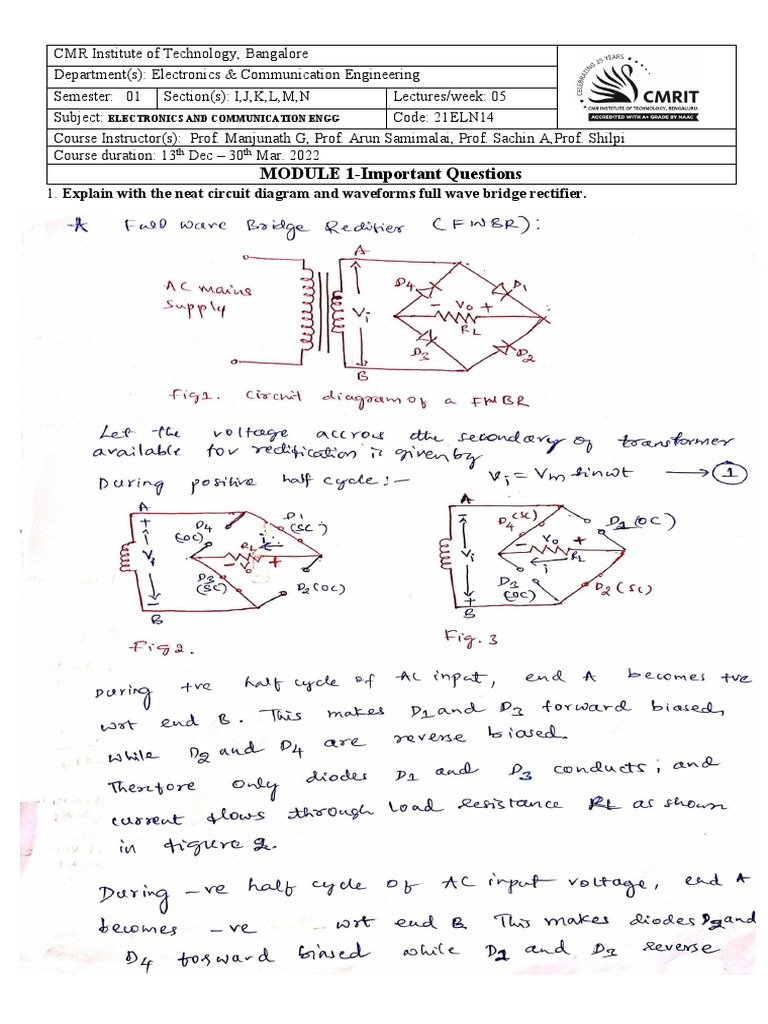 CMR Institute of Technology, Bangalore
Department(s): Electronics & Communication Engineering
Semester: 01 Section(s): I,J,K,L,M,N Lectures/week: 05
Subject: ELECTRONICS AND COMMUNICATION ENGG Code: 21ELN14
Course Instructor(s): Prof. Manjunath G, Prof. Arun Samimalai, Prof. Sachin A,Prof. Shilpi
Course duration: 13th Dec – 30th Mar. 2022
CELEBRATING 25 YEARS
CMRIT
CMR INSTITUTE OF TECHNOLOGY, BENGALURU.
ACCREDITED WITH A+ GRADE BY NAAC
MODULE 1-Important Questions
1. Explain with the neat circuit diagram and waveforms full wave bridge rectifier.
Full wave Bridge Rectifier (FWBR):
AC mains
supply
A
Vi
B
D4
D1
- Vo +
RL
D3
D2
Fig1. Circuit diagram of a FWBR
Let the voltage accross the secondary of transformer
available for rectification is given by
Vi = Vm sinwt → 1
During positive half cycle:-
A
+
Vi
-
B
D4
(OC)
D1
(SC)
RL
- Vo +
D3
(SC)
D2(OC)
Fig2.
A
-
Vi
+
B
D4 (SC)
D1(OC)
- Vo +
RL
i
D3
(OC)
D2(SC)
Fig. 3
During +ve half cycle of AC input, end A becomes +ve
wrt end B. This makes D1 and D3 forward biased,
while D2 and D4 are reverse biased.
Therefore only diodes D1 and D3 conducts; and
current flows through load resistance RL as shown
in figure 2.
During -ve half cycle of AC input voltage, end A
becomes -ve wrt end B. This makes diodes D2 and
D4 forward biased while D1 and D3 reverse